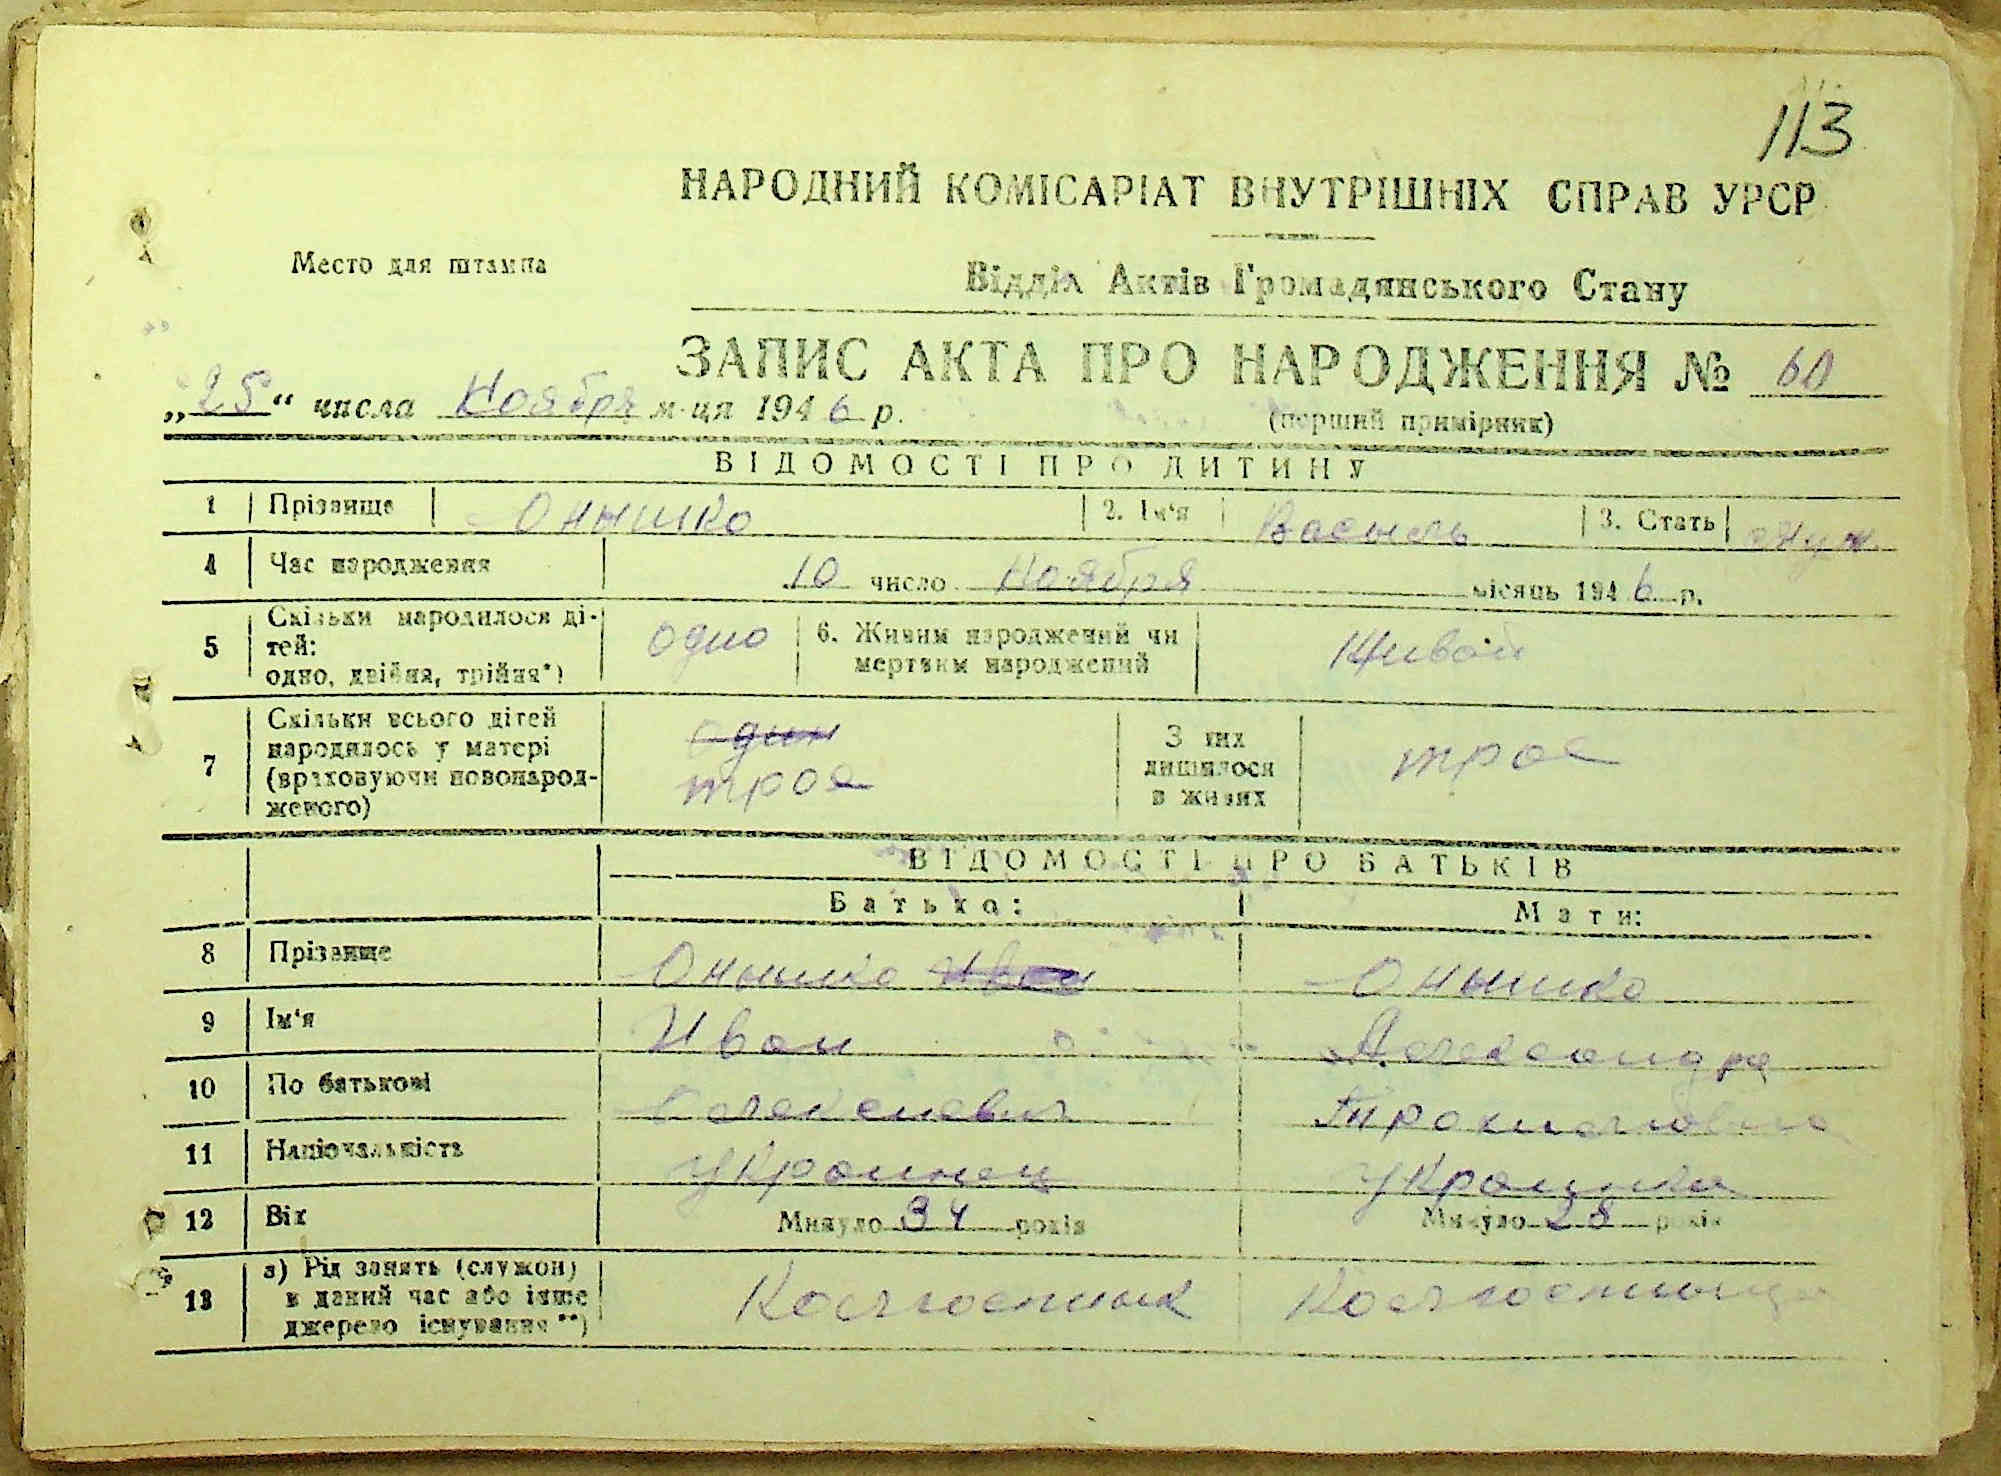 113
НАРОДНИЙ КОМІСАРІАТ ВНУТРІШНІХ СПРАВ УРСР
Место для штампа
Відділ Актів Громадянського Стану
ЗАПИС АКТА ПРО НАРОДЖЕННЯ № 60
„25“ числа Ноября м-ця 1946 р.
(перший примірник)
ВІДОМОСТІ ПРО ДИТИНУ
1 Прізвище Онышко 2. Ім'я Василь 3. Стать муж
4 Час народження 10 число Ноября місяць 1946 р.
5 Скільки народилося ді-
тей:
одно, двійня, трійня*) одно 6. Живим народжений чи
мертвим народжений Живой
7 Скільки всього дітей
народилось у матері
(враховуючи новонарод-
женого) один
трое З них
лишилося
в живих трое
ВІДОМОСТІ ПРО БАТЬКІВ
Батько: Мати:
8 Прізвище Онышко Иван Онышко
9 Ім'я Иван Александра
10 По батькові
11 Національність Украинец Украинка
12 Вік Минуло 34 років Минуло 28 років
13 а) Рід занять (служби)
в даний час або інше
джерело існування**) Колгоспнык Колгоспныця